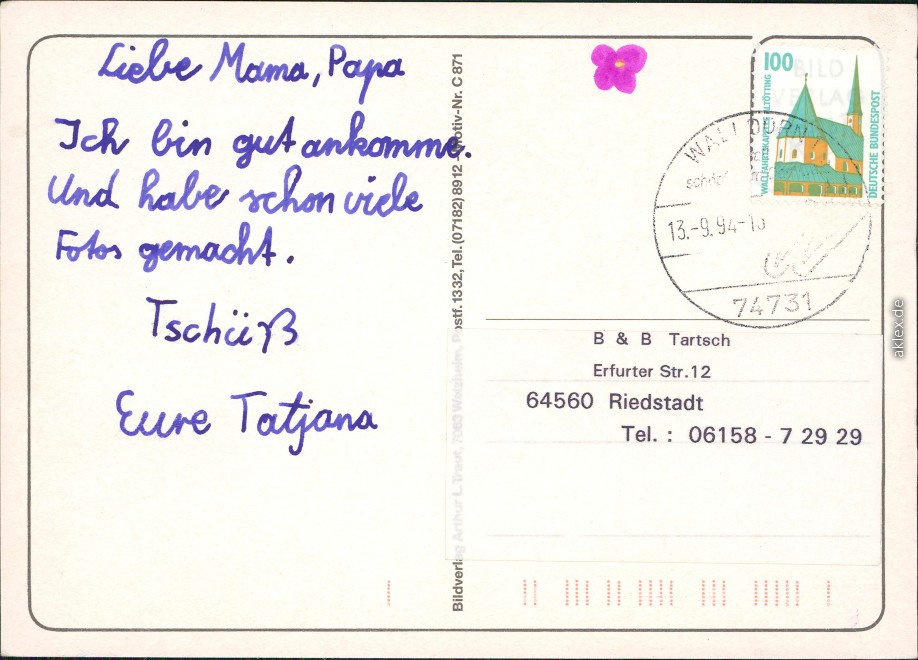 Liebe Mama, Papa
Ich bin gut ankomme.
Und habe schon viele
Fotos gemacht.
Tschüß
Eure Tatjana
Bildverlag Arthur F. Traut, 7063 Welzheim, Postf. 1332, Tel. (07182) 8912 Motiv-Nr. C 871
100
WALLFAHRTSKAPELLE ALTÖTTING
DEUTSCHE BUNDESPOST
BILD
VERLAG
WALLDÜRN
13.-9.94-
74731
B & B Tartsch
Erfurter Str.12
64560 Riedstadt
Tel. : 06158 - 7 29 29
aklex.de